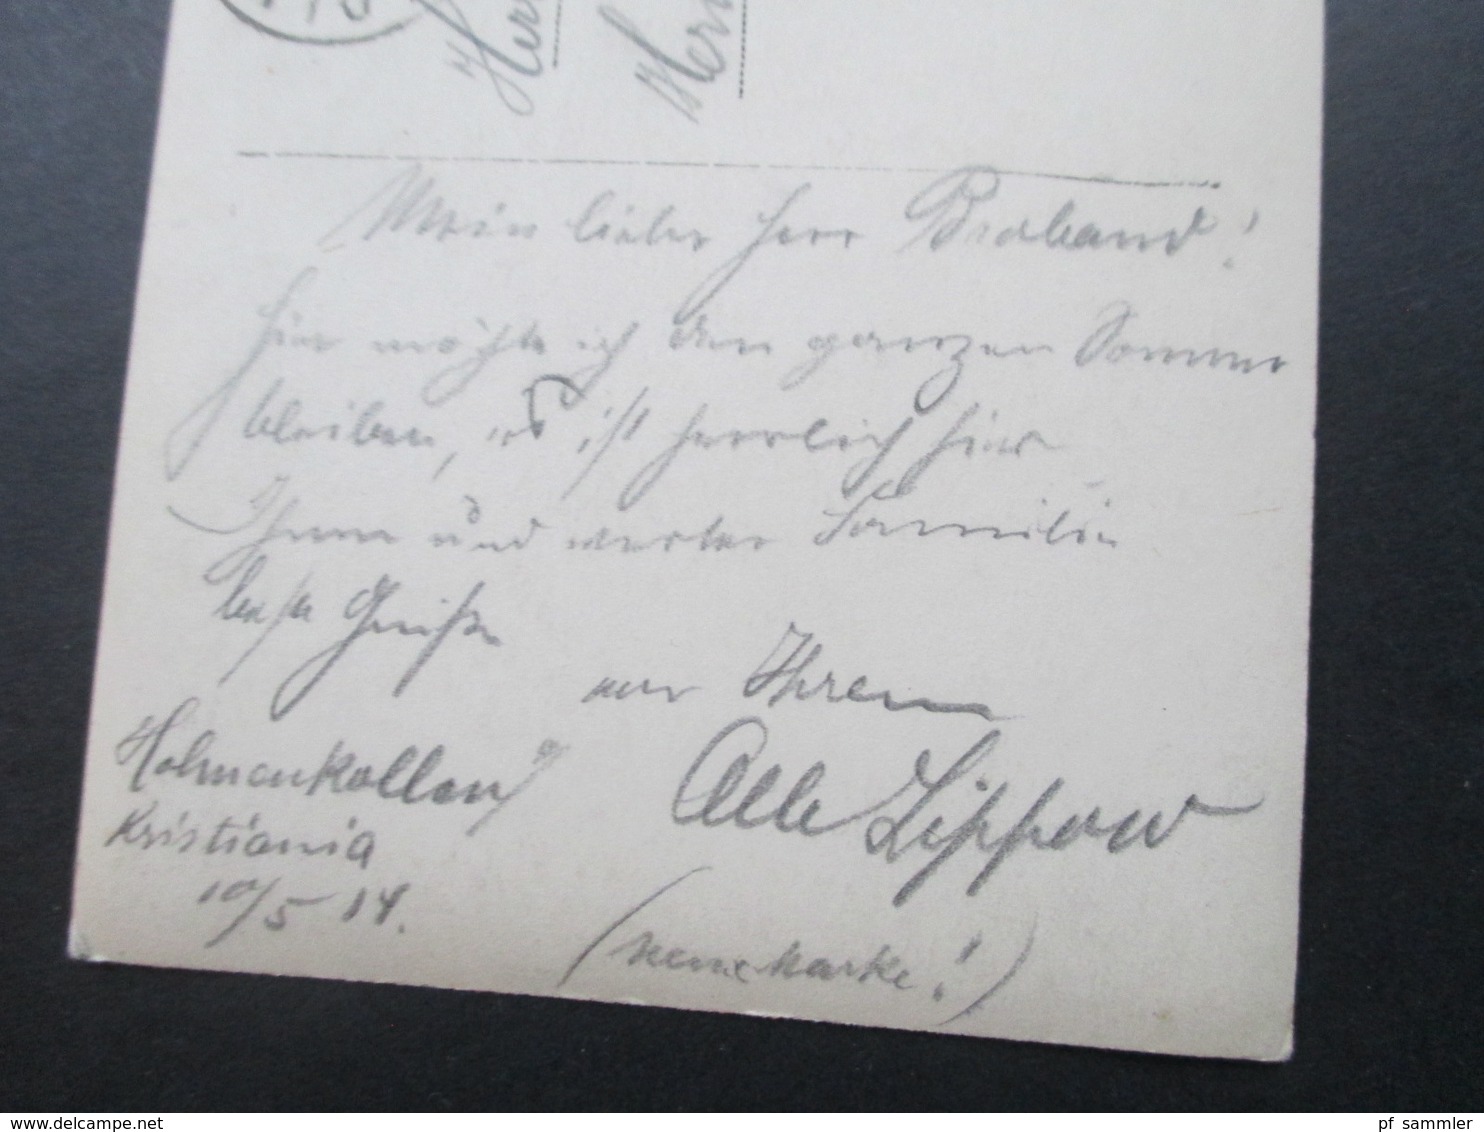 Mein lieber Herr Braband!
Hier möchte ich den ganzen Sommer
bleiben, es ist herrlich hier
Ihnen und werter Familie
beste Grüße
von Ihrem
Lippow
Holmenkollen
Kristiania
10/5 14.
(neue Marke!)
pf_sammler
www.delcampe.net